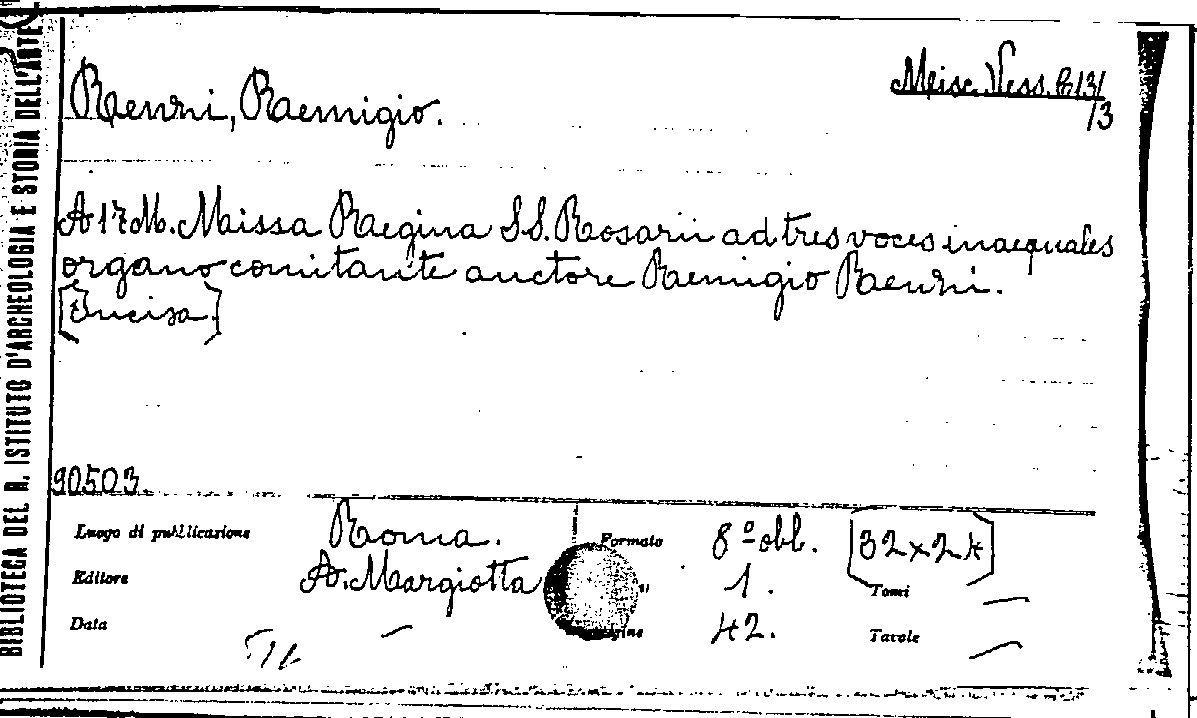 BIBLIOTECA DEL R. ISTITUTO D'ARCHEOLOGIA E STORIA DELL'ARTE
Renzi, Remigio.
Misc. Vess. B 131/3
A 17 M. Missa Regina SS. Rosarii ad tres voces inaequales
organo comitante auctore Remigio Renzi.
[Incisa.]
90503
Luogo di pubblicazione Roma. Formato 8º obl. [32×24]
Editore A. Margiotta 1. Tomi —
Data — 42. Tavole —